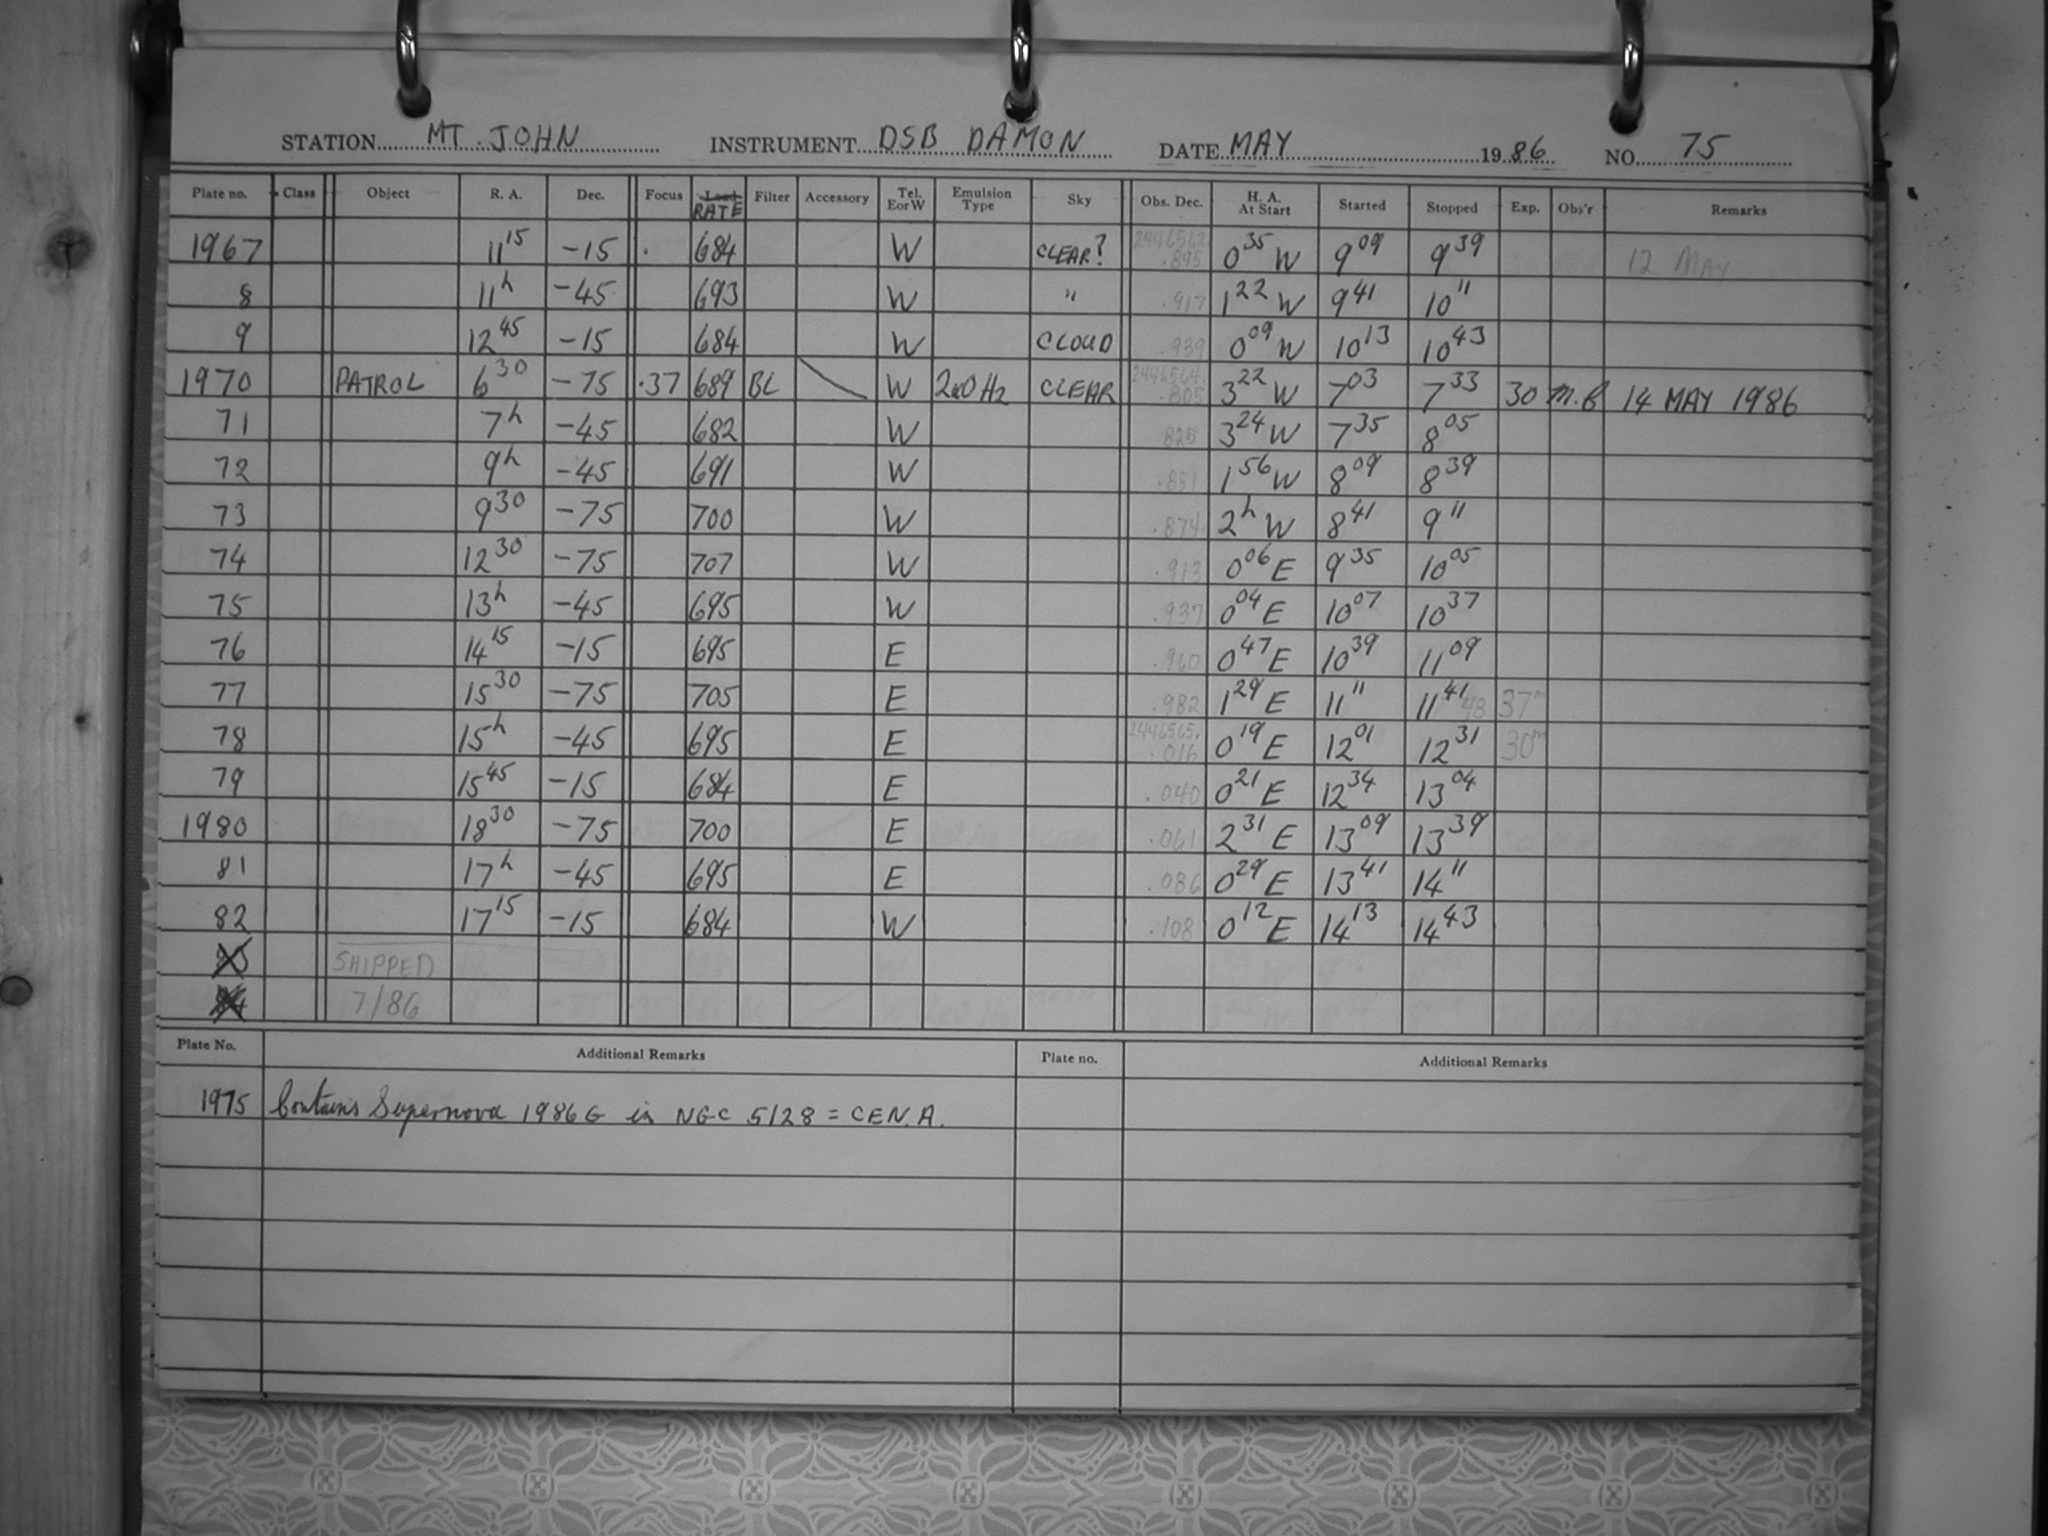 STATION MT. JOHN INSTRUMENT DSB DAMON DATE MAY 1986 NO. 75
Plate no. Class Object R. A. Dec. Focus Load RATE Filter Accessory Tel. E or W Emulsion Type Sky Obs. Dec. H. A. At Start Started Stopped Exp. Obs'r Remarks
1967 11 15 -15 . 684 W CLEAR? 2446562 .895 0 35 W 9 09 9 39 12 MAY
8 11 h -45 693 W " .917 1 22 W 9 41 10 11
9 12 45 -15 684 W CLOUD .939 0 09 W 10 13 10 43
1970 PATROL 6 30 -75 .37 689 BL W 2a0 H2 CLEAR 2446564. .805 3 22 W 7 03 7 33 30 M.B 14 MAY 1986
71 7 h -45 682 W 825 3 24 W 7 35 8 05
72 9 h -45 691 W .851 1 56 W 8 09 8 39
73 9 30 -75 700 W .874 2 h W 8 41 9 11
74 12 30 -75 707 W .913 0 06 E 9 35 10 05
75 13 h -45 695 W .937 0 04 E 10 07 10 37
76 14 15 -15 695 E .960 0 47 E 10 39 11 09
77 15 30 -75 705 E .982 1 29 E 11 11 11 41 48 37 m
78 15 h -45 695 E 2446565. .016 0 19 E 12 01 12 31 30 m
79 15 45 -15 684 E .040 0 21 E 12 34 13 04
1980 18 30 -75 700 E .061 2 31 E 13 09 13 39
81 17 h -45 695 E .086 0 29 E 13 41 14 11
82 17 15 -15 684 W .108 0 12 E 14 13 14 43
SHIPPED
7/86
Plate No. Additional Remarks Plate no. Additional Remarks
1975 Contains Supernova 1986G in NGC 5128 = CEN. A.